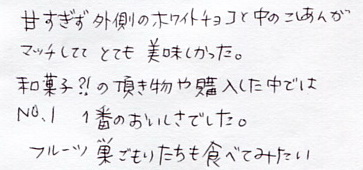 甘すぎず外側のホワイトチョコと中のこしあんが
マッチしてて とても 美味しかった。
和菓子?!の頂き物や購入した中では
NO.1 1番のおいしさでした。
フルーツ巣ごもりたちも食べてみたい